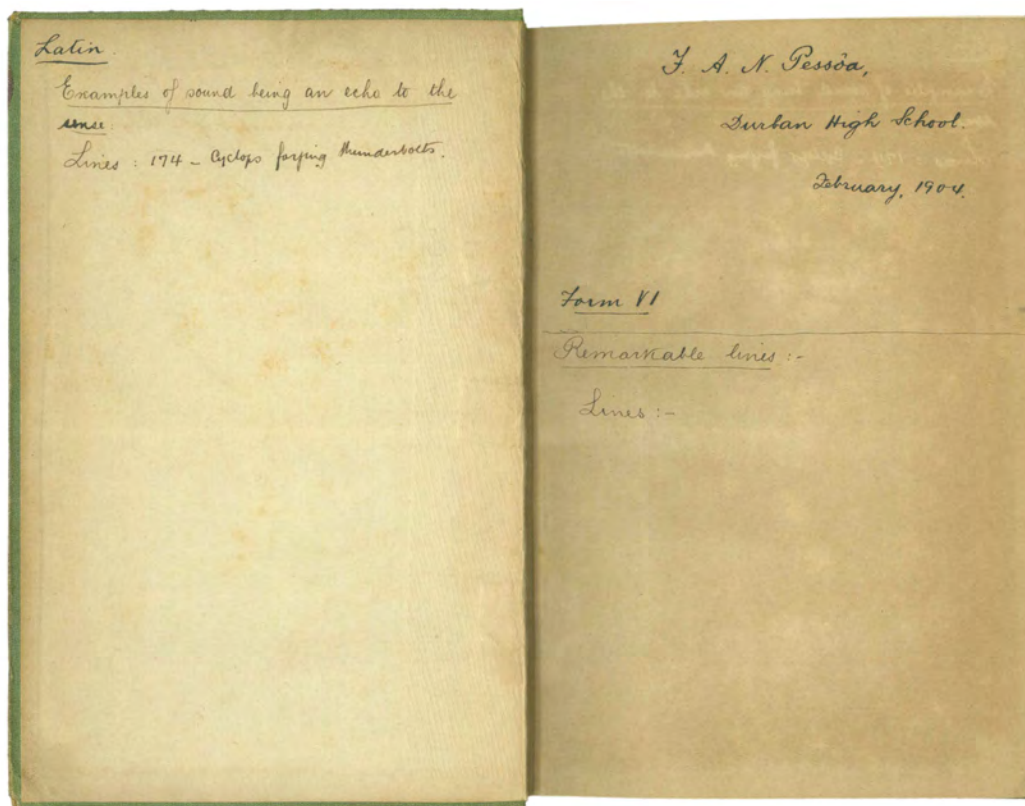 Latin.
Examples of sound being an echo to the
sense:
Lines: 174 - Cyclops forging thunderbolts.
F. A. N. Pessôa,
Durban High School.
February, 1904.
Form VI
Remarkable lines :-
Lines :-